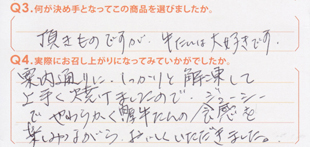 Q3.何が決め手となってこの商品を選びましたか。
頂きものですが、牛たんは大好きです。
Q4.実際にお召し上がりになってみていかがでしたか。
案内通りに、しっかりと解凍して
上手く焼けましたので、ジューシー
でやわらかく牛たんの食感を
楽しみながら、おいしくいただきました。